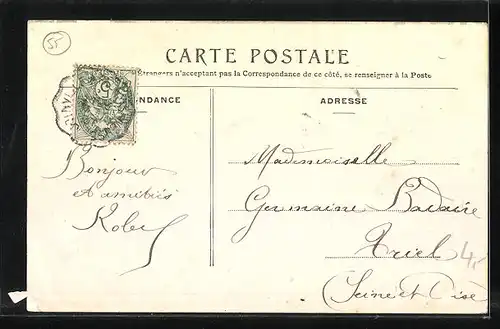 55
CARTE POSTALE
Étrangers n'acceptant pas la Correspondance de ce côté, se renseigner à la Poste
NDANCE
ADRESSE
Mademoiselle
Bonjour
et amitiés
Germaine
Robert
Triel
(Seine et Oise)